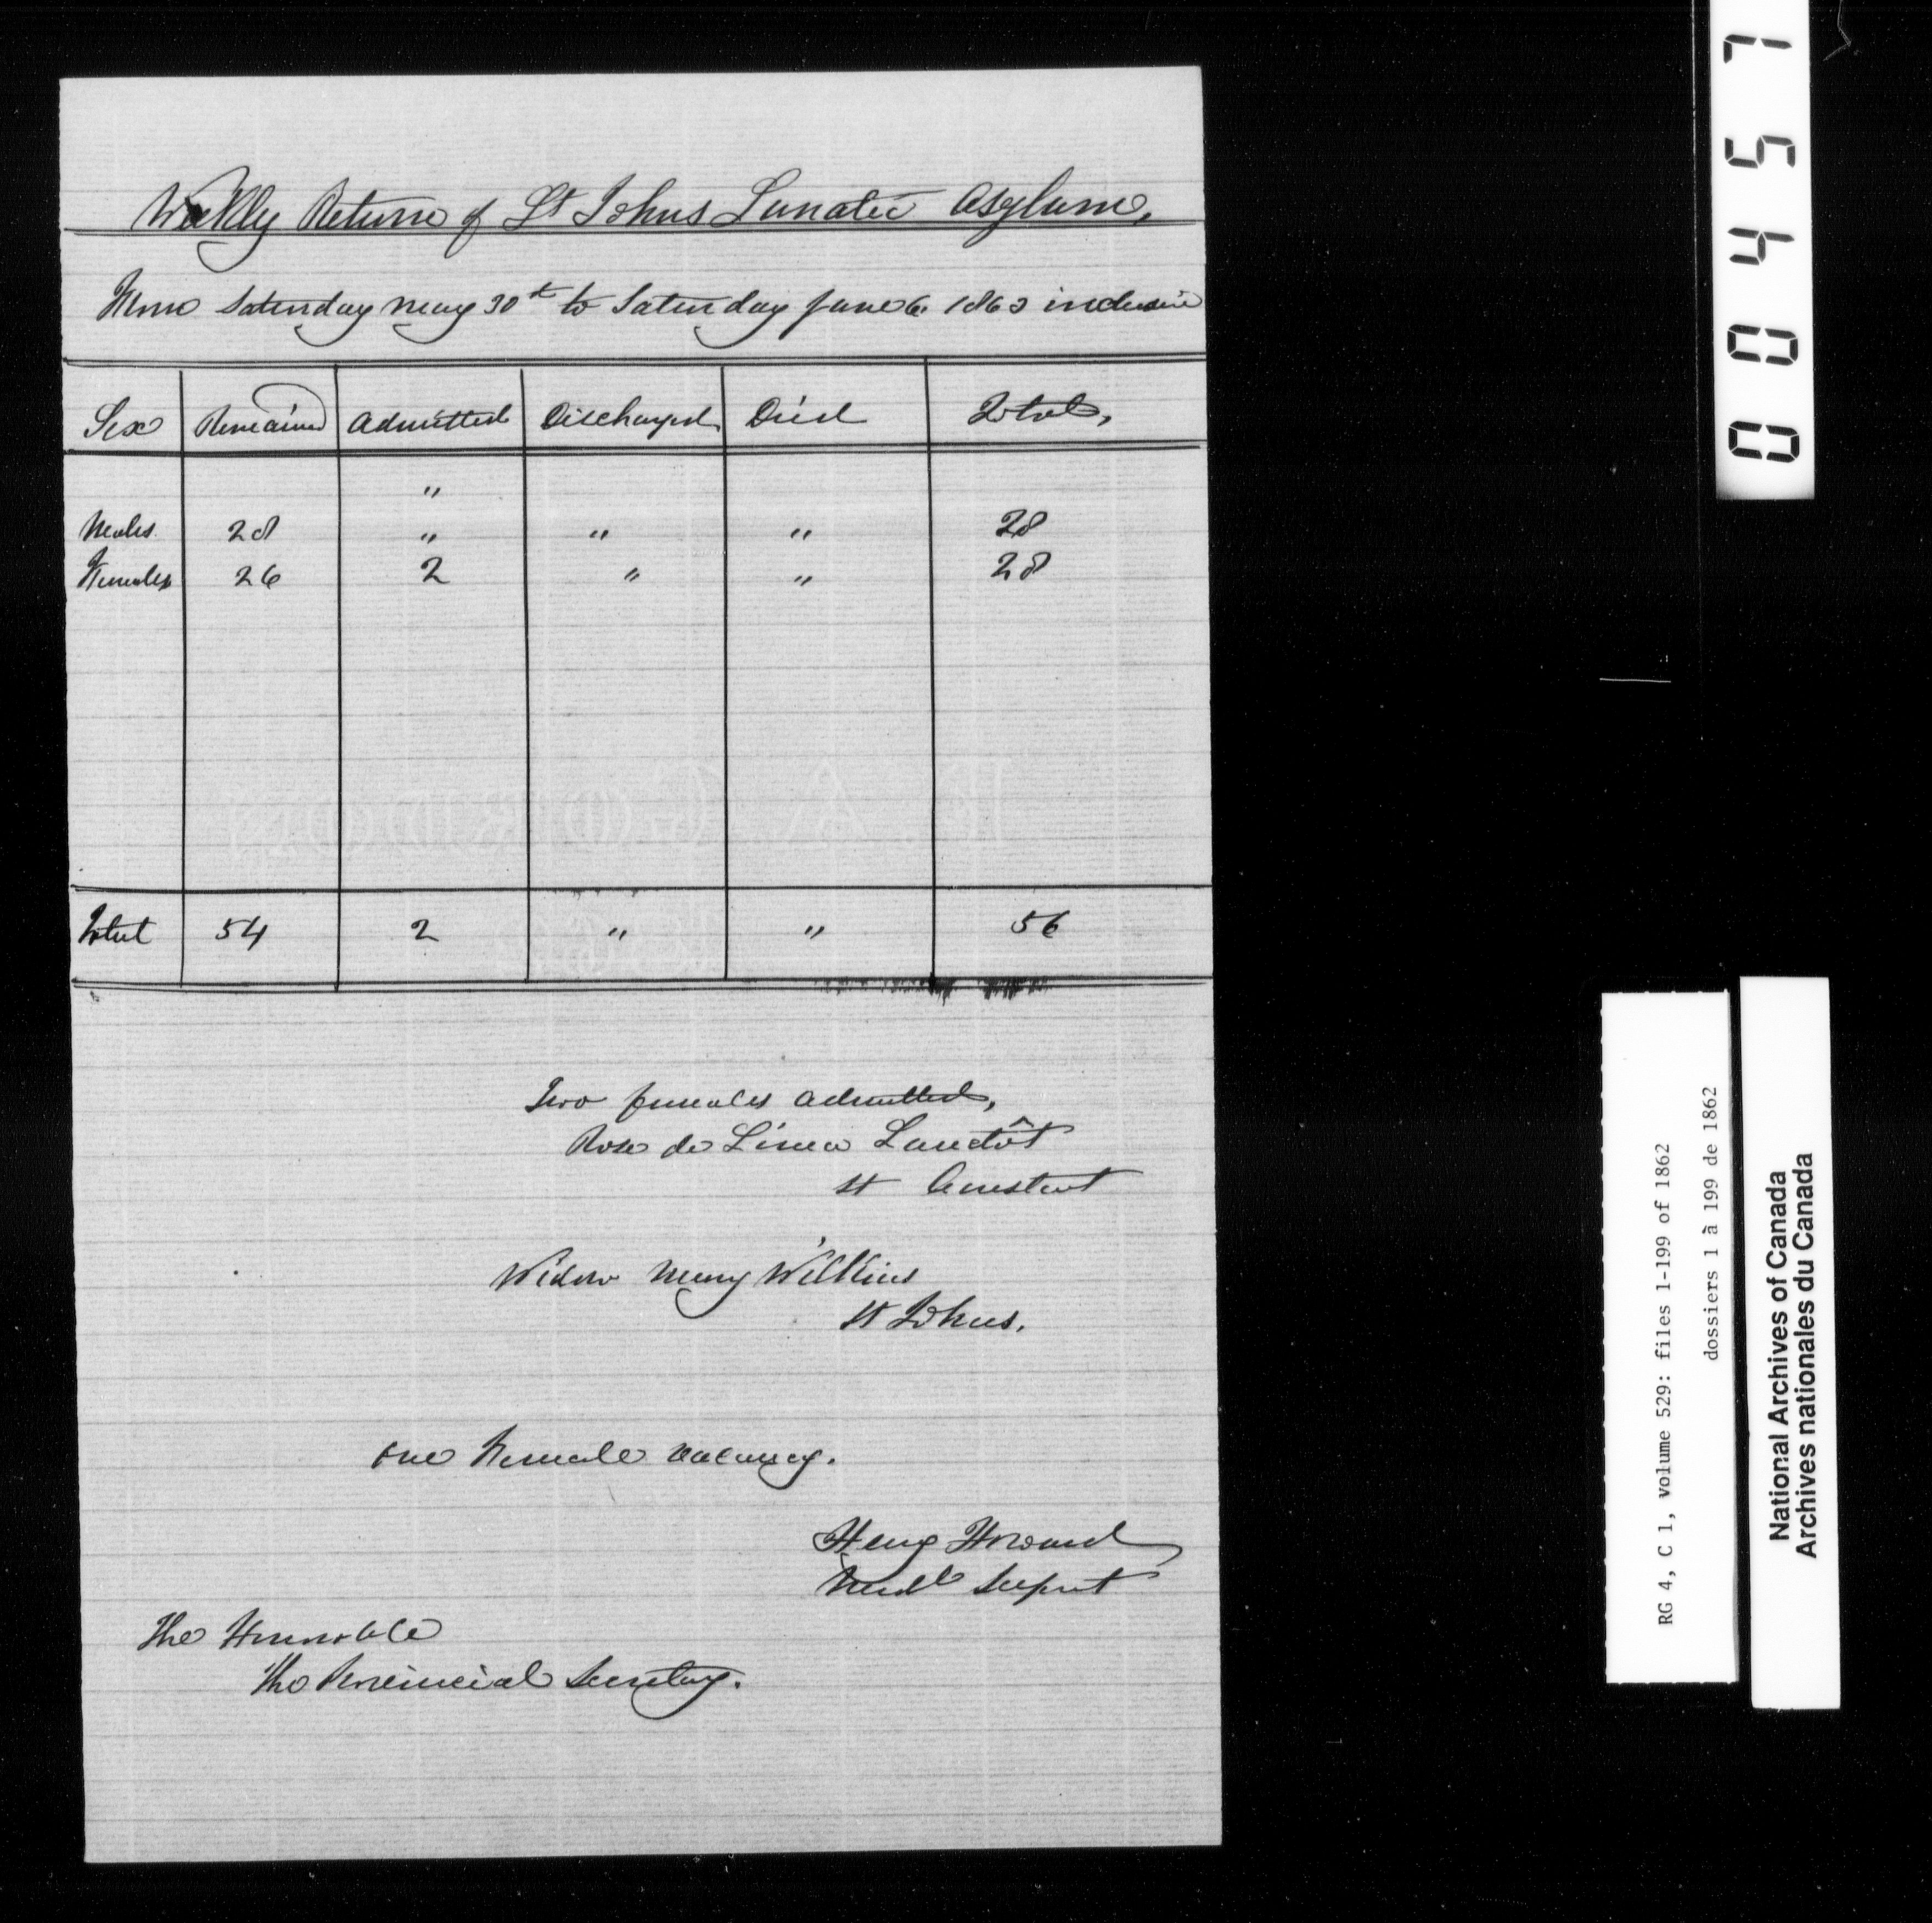 Weekly Return of St Johns Lunatic Asylum,
From Saturday May 30th to Saturday June 6. 1863 inclusive
Sex Remained Admitted Discharged Died Total,
"
Males 28 " " " 28
Females 26 2 " " 28
Total 54 2 " " 56
Two females admitted,
Rose de Lima Lanctôt
St Constant
Widow Mary Wilkins
St Johns.
One Female vacancy.
Henry Howard
Medl Supert
The Honorable
The Provincial Secretary.
00457
RG 4, C 1, volume 529: files 1-199 of 1862
dossiers 1 à 199 de 1862
National Archives of Canada
Archives nationales du Canada